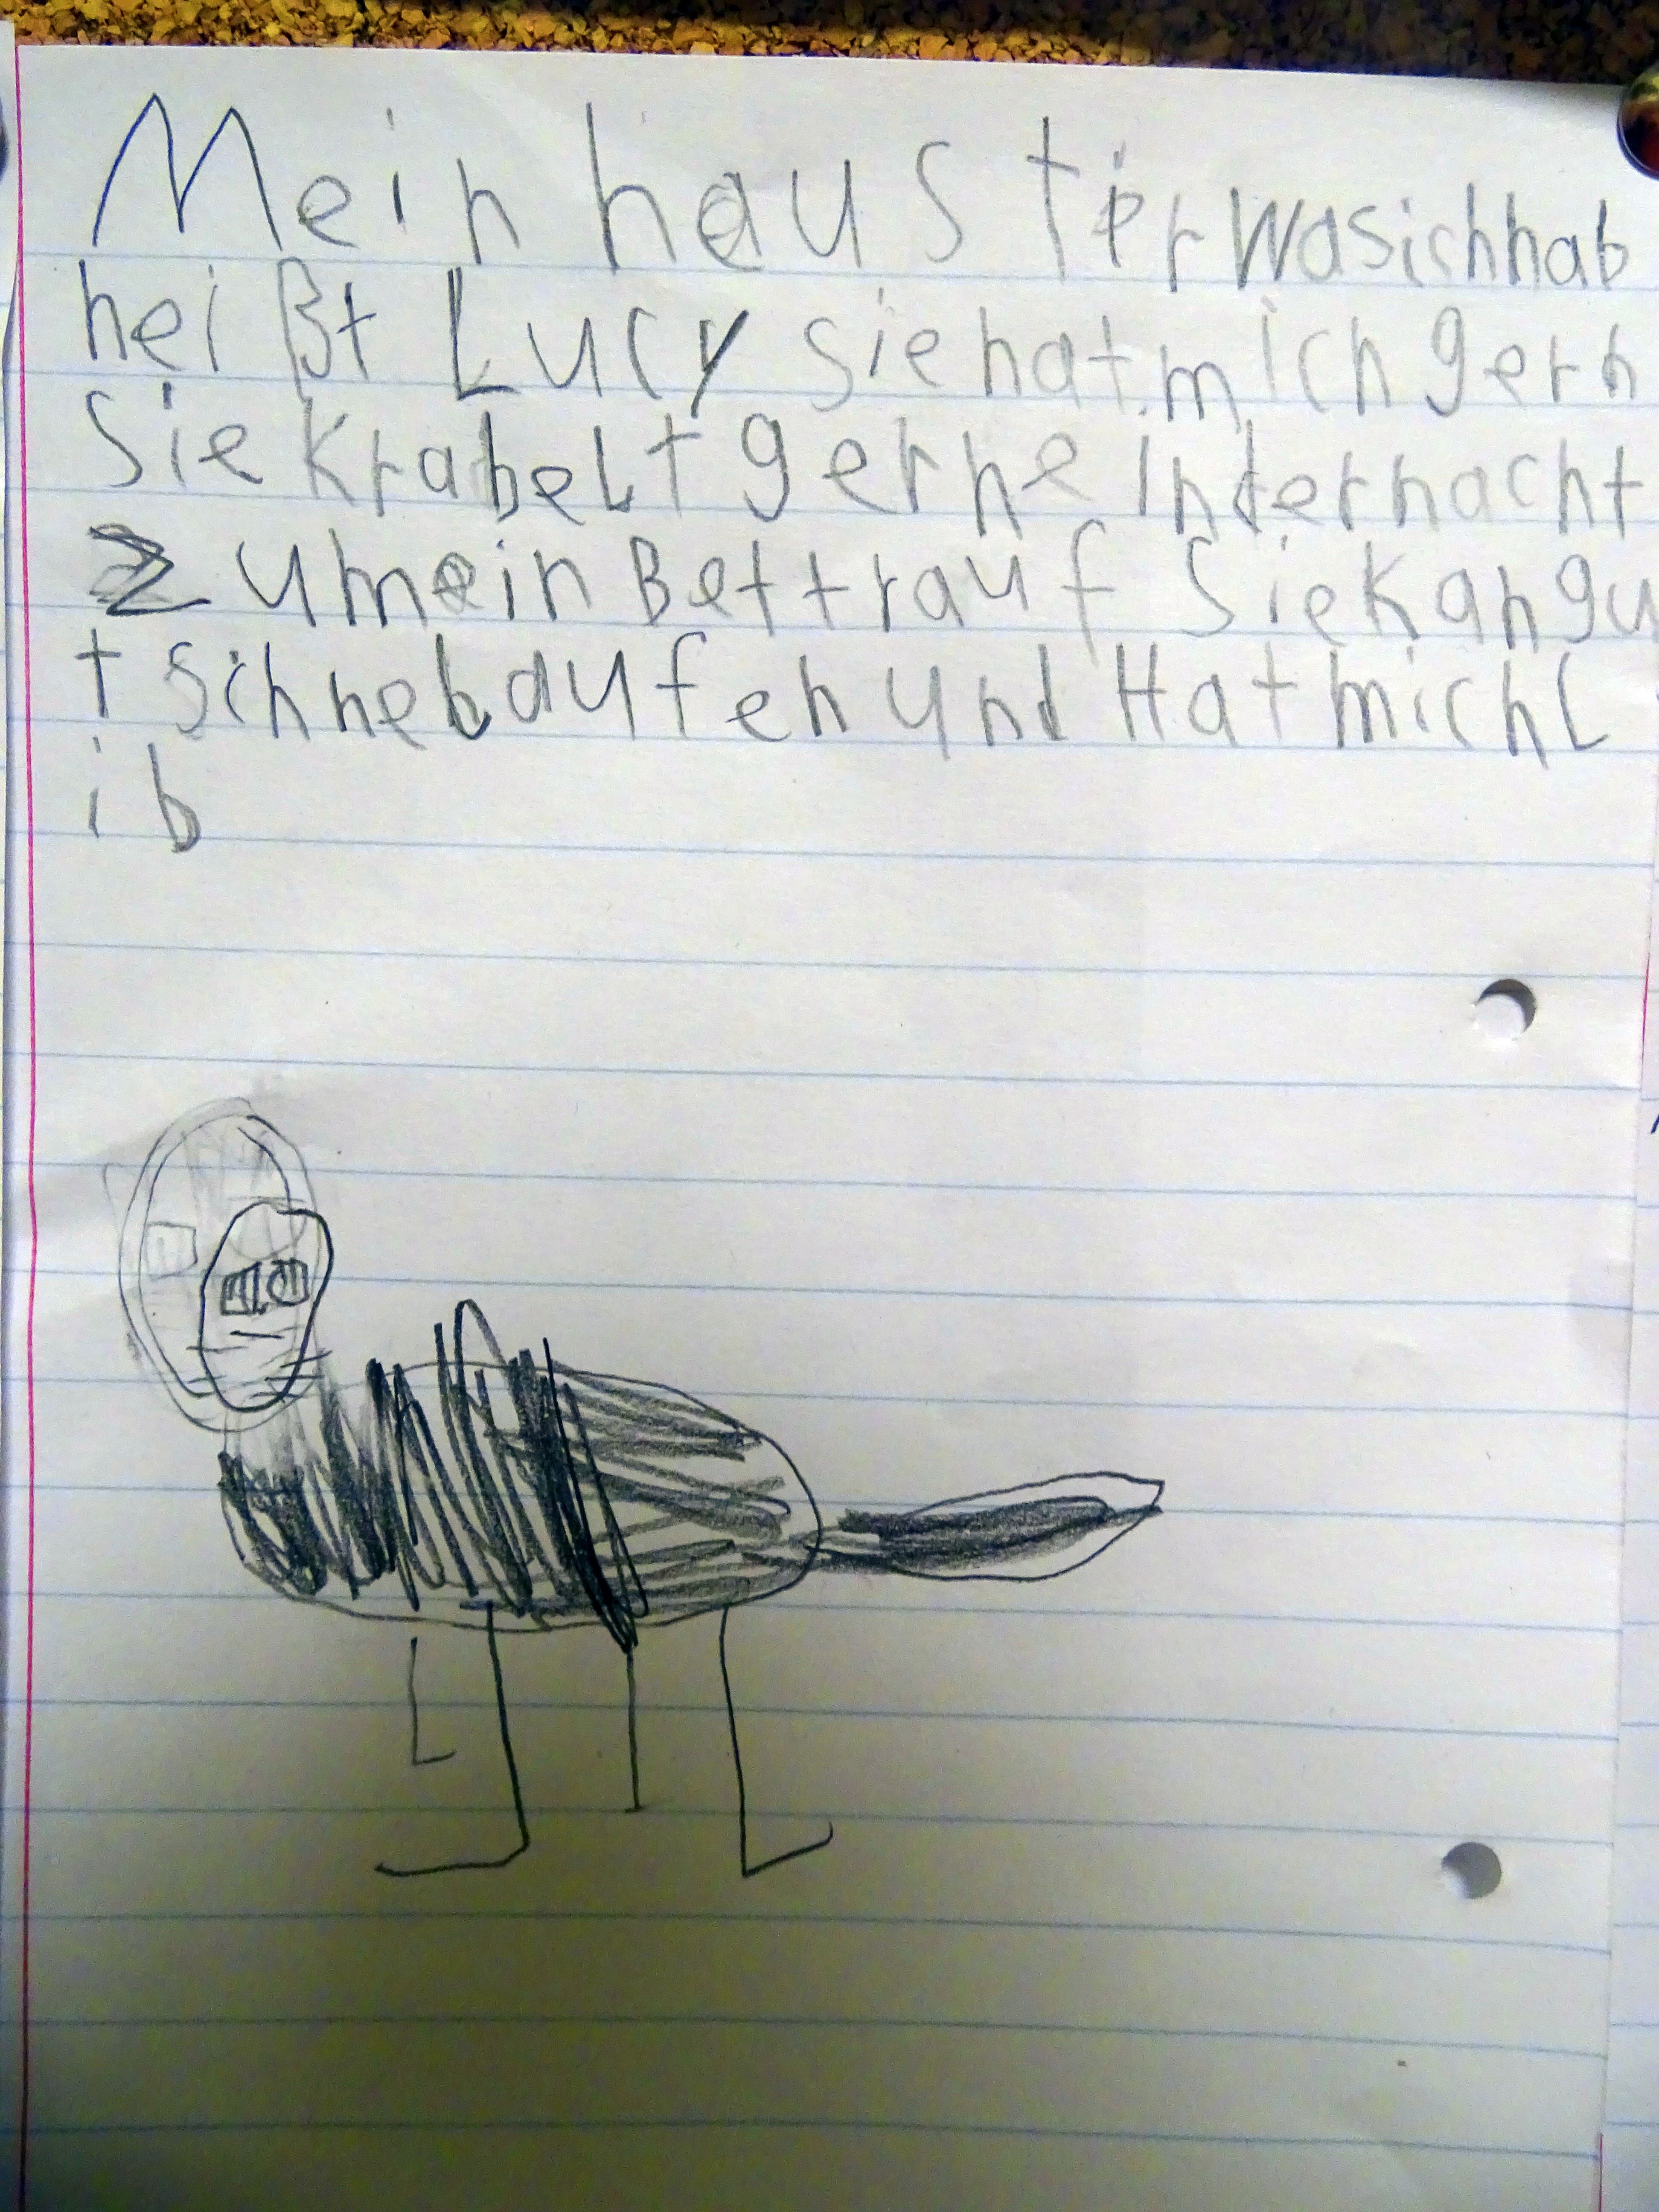 Mein haus tir wasichhab
heißt Lucy siehatmichgern
Siekrabelt gerne indernacht
zumein Bettrauf Siekangu
t schnelaufen und Hatmichl
ib